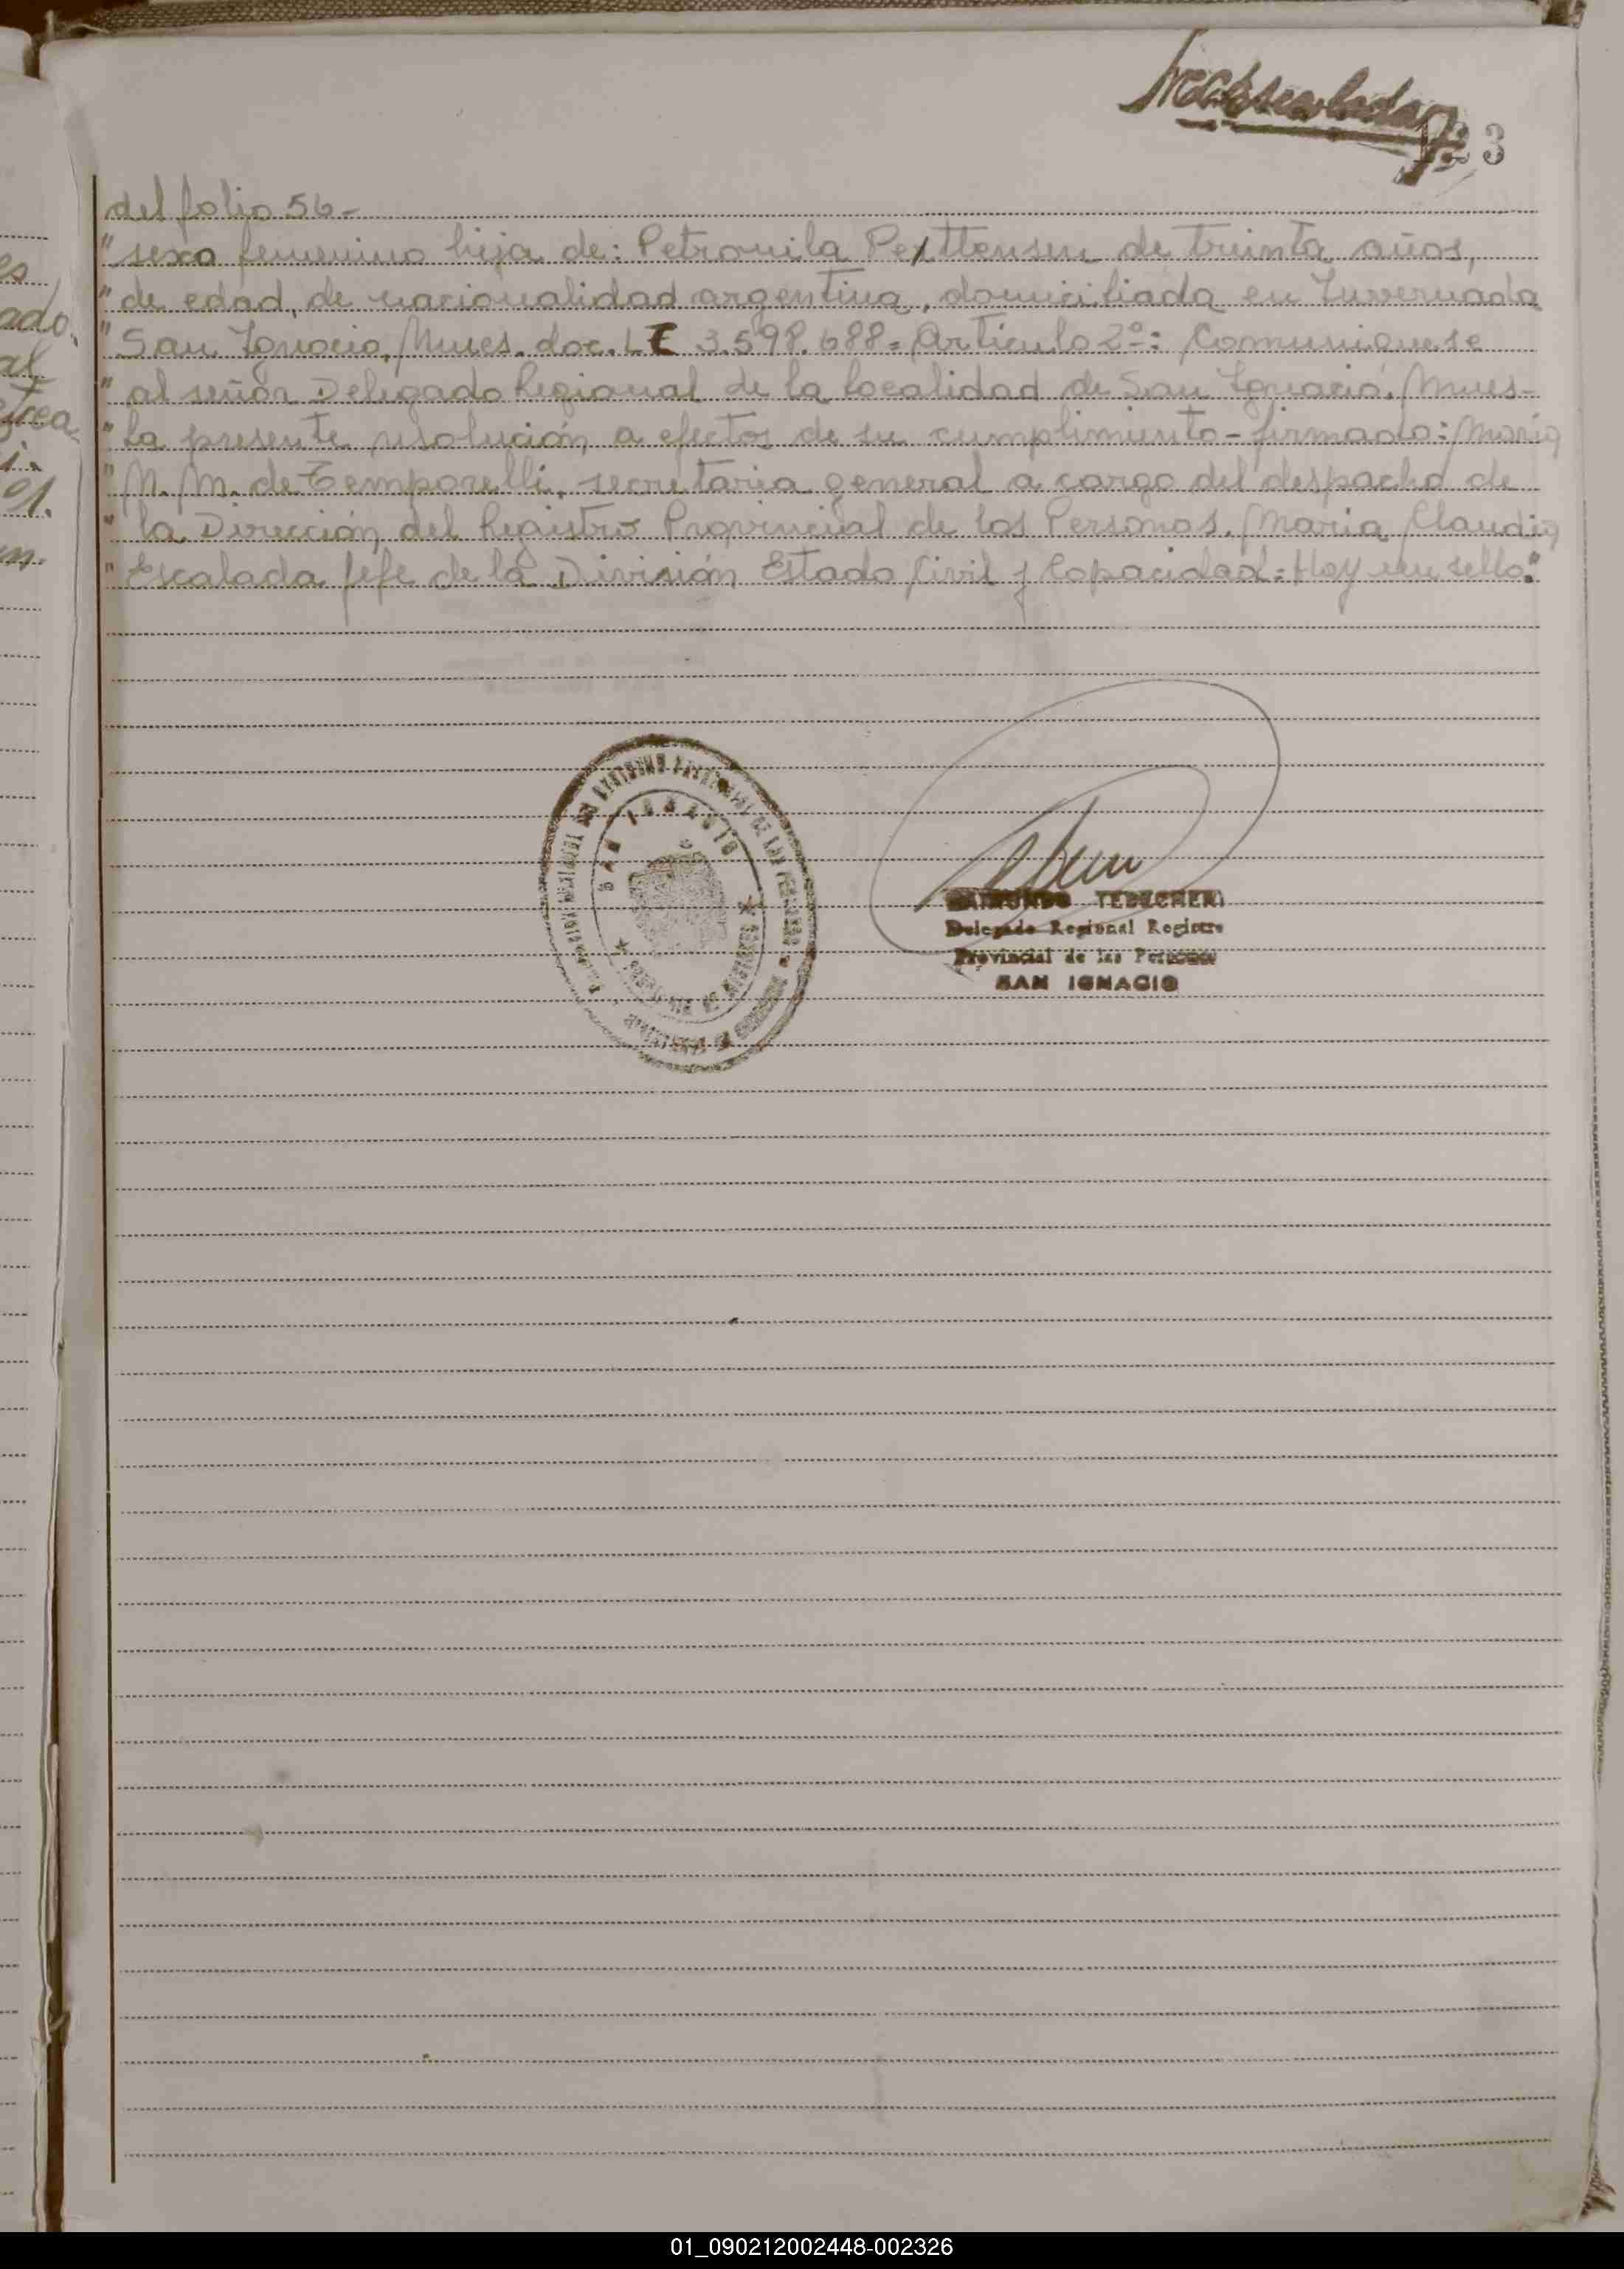 3
del folio 56-
" sexo femenino hija de: Petronila Pexttensen de treinta años,
" de edad, de nacionalidad argentina, domiciliada en Invernada
" San Ignacio, Mnes. doc. LE 3.598.688= Artículo 2º: Comuniquese
" al señor Delegado Regional de la localidad de San Ignacio, Mnes-
" la presente resolución, a efectos de su cumplimiento- firmado: María
" M. M. de Temporelli, secretaria general a cargo del despacho de
" la Dirección del Registro Provincial de las Personas. María Claudia
" Escalada Jefe de la División Estado Civil y Capacidad= Hay un sello."
SAN IGNACIO
Delegado Regional Registro
Provincial de las Personas
SAN IGNACIO
01_090212002448-002326